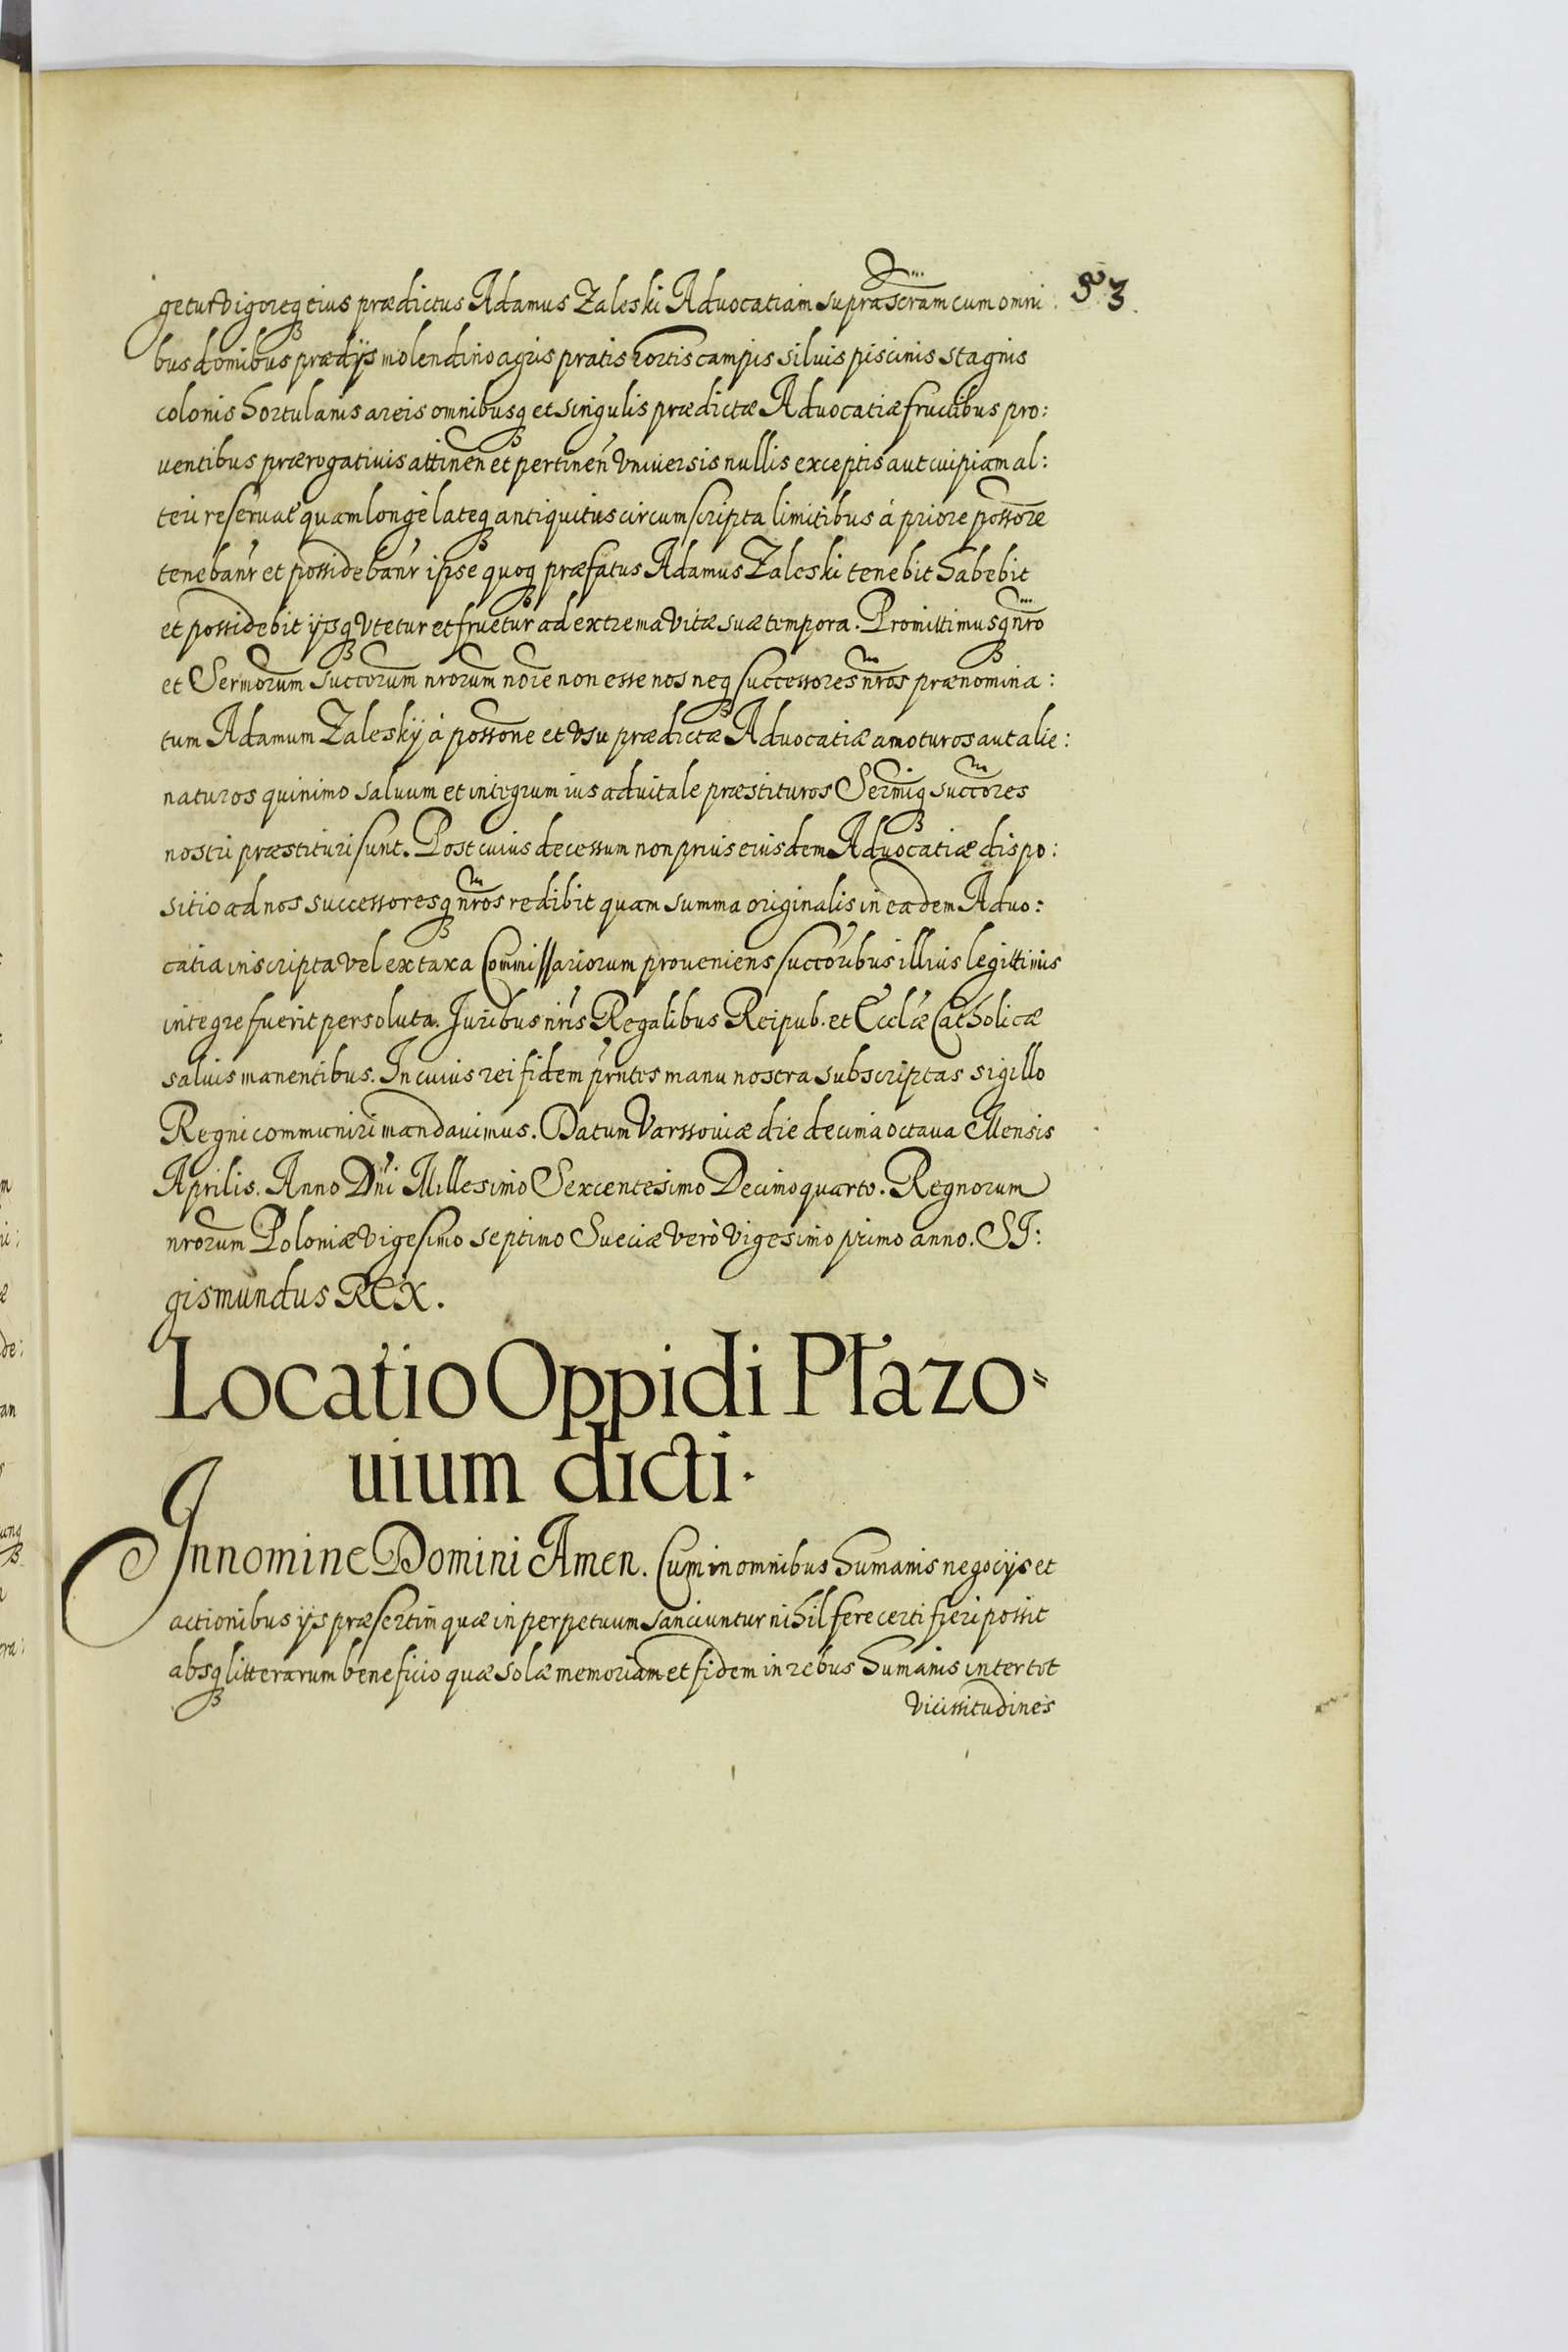 getur vigoreq eius prædictus Adamus Zaleski Advocatiam supra scram cum omni
53
bus domibus prædijs molendino agris pratis hortis campis siluis piscinis stagnis
colonis hortulanis areis omnibusq et singulis prædictæ Advocatiæ fructibus pro:
uentibus prærogatiuis attinen et pertinen vniuersis nullis exceptis aut cuipiam al:
teri reseruat quam longè lateq antiquitus circumscripta limitibus à priore possore
tenebanr et possidebanr ipse quoq præfatus Adamus Zaleski tenebit habebit
et possidebit ijsq vtetur et fruetur ad extrema vitæ suæ tempora. Promittimusq nro
et Sermorum succorum nrorum nore non esse nos neq successores nros prænomina:
tum Adamum Zaleskÿ à possone et vsu prædictæ Advocatiæ amoturos aut alie:
naturos quinimo saluum et integrum ius aduitale præstituros Sermiq succores
nostri præstituri sunt. Post cuius decessum non prius eiusdem Advocatiæ dispo:
sitio ad nos successoresq nros redibit quam summa originalis in eadem Aduo:
catia inscripta vel ex taxa Commissariorum proueniens succoribus illius legittimis
integre fuerit persoluta. Juribus nris Regalibus Reipub. et Ecclæ Catholicæ
saluis manentibus. In cuius rei fidem pntes manu nostra subscriptas sigillo
Regni communiri mandauimus. Datum Varssouiæ die decima octaua Mensis
Aprilis. Anno Dni Millesimo Sexcentesimo Decimoquarto. Regnorum
nrorum Poloniæ vigesimo septimo Sueciæ verò vigesimo primo anno. SI:
gismundus REX.
Locatio Oppidi Płazo=
uium dicti.
In nomine Domini Amen. Cum in omnibus humanis negocijs et
actionibus ijs præsertim quæ in perpetuum sanciuntur nihil fere certi fieri possit
absq litterarum beneficio quæ solæ memoriam et fidem in rebus humanis inter tot
vicissitudines